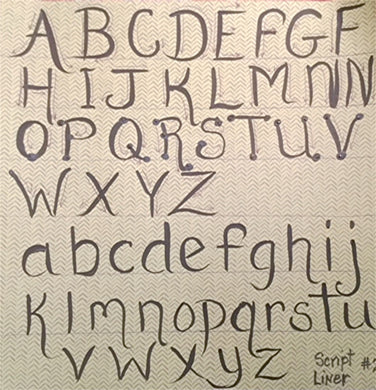 A B C D E F G F
H I J K L M N N
O P Q R S T U V
W X Y Z
a b c d e f g h i j
k l m n o p q r s t u
v w x y z
Script #2
Liner